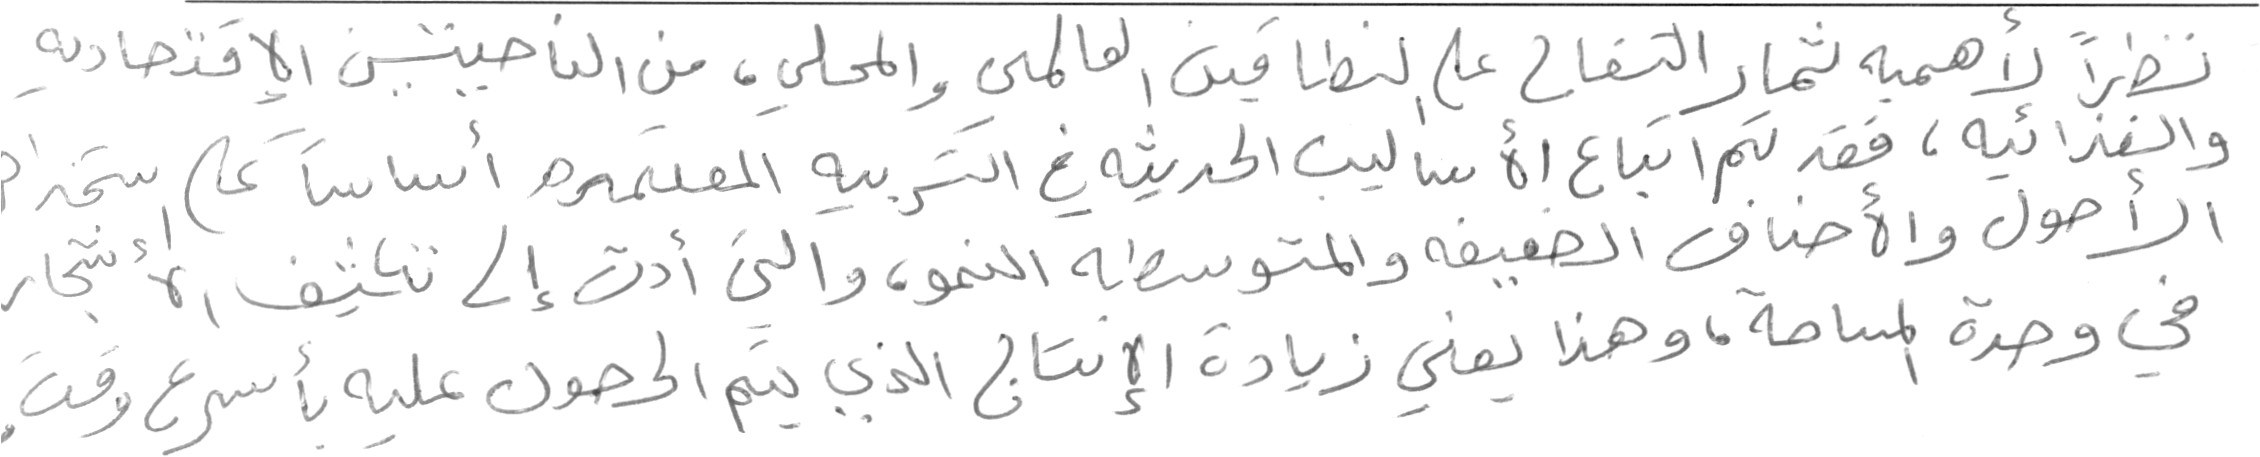 نظراً لأهميه ثمار التفاح على النطاقين العالمي والمحلي، من الناحيتين الإقتصاديه
والغذائيه، فقد تم اتباع الأساليب الحديثه في التربيه المعتمده أساساً على استخدام
الأصول والأصناف الضعيفه والمتوسطه النمو، والتي أدت إلى تكثيف الأشجار
في وحدة المساحة، وهذا يعني زيادة الإنتاج الذي يتم الحصول عليه بأسرع وقت.